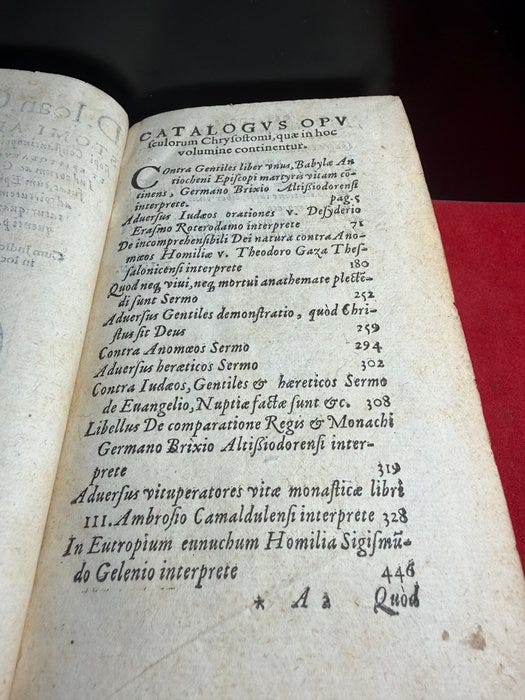 CATALOGVS OPV
sculorum Chrysostomi, quæ in hoc
volumine continentur.
Contra Gentiles liber vnus, Babylæ An
tiocheni Episcopi martyris vitam cō-
tinens, Germano Brixio Altißiodorensi
interprete. pag.5
Adversus Iudæos orationes v. Desyderio
Erasmo Roterodamo interprete 71
De incomprehensibili Dei natura contra Ano-
mœos Homiliæ v. Theodoro Gaza Thes-
salonicensi interprete 180
Quod neq; viui, neq; mortui anathemate plecte-
di sunt Sermo 252
Adversus Gentiles demonstratio, quòd Chri-
stus sit Deus 259
Contra Anomœos Sermo 294
Adversus hæreticos Sermo 302
Contra Iudæos, Gentiles & hæreticos Sermo
de Evangelio, Nuptiæ factæ sunt &c. 308
Libellus De comparatione Regis & Monachi
Germano Brixio Altißiodorensi inter-
prete 319
Adversus vituperatores vitæ monasticæ libri
III. Ambrosio Camaldulensi interprete 328
In Eutropium eunuchum Homilia Sigismū-
do Gelenio interprete 446
* A 2 Quod